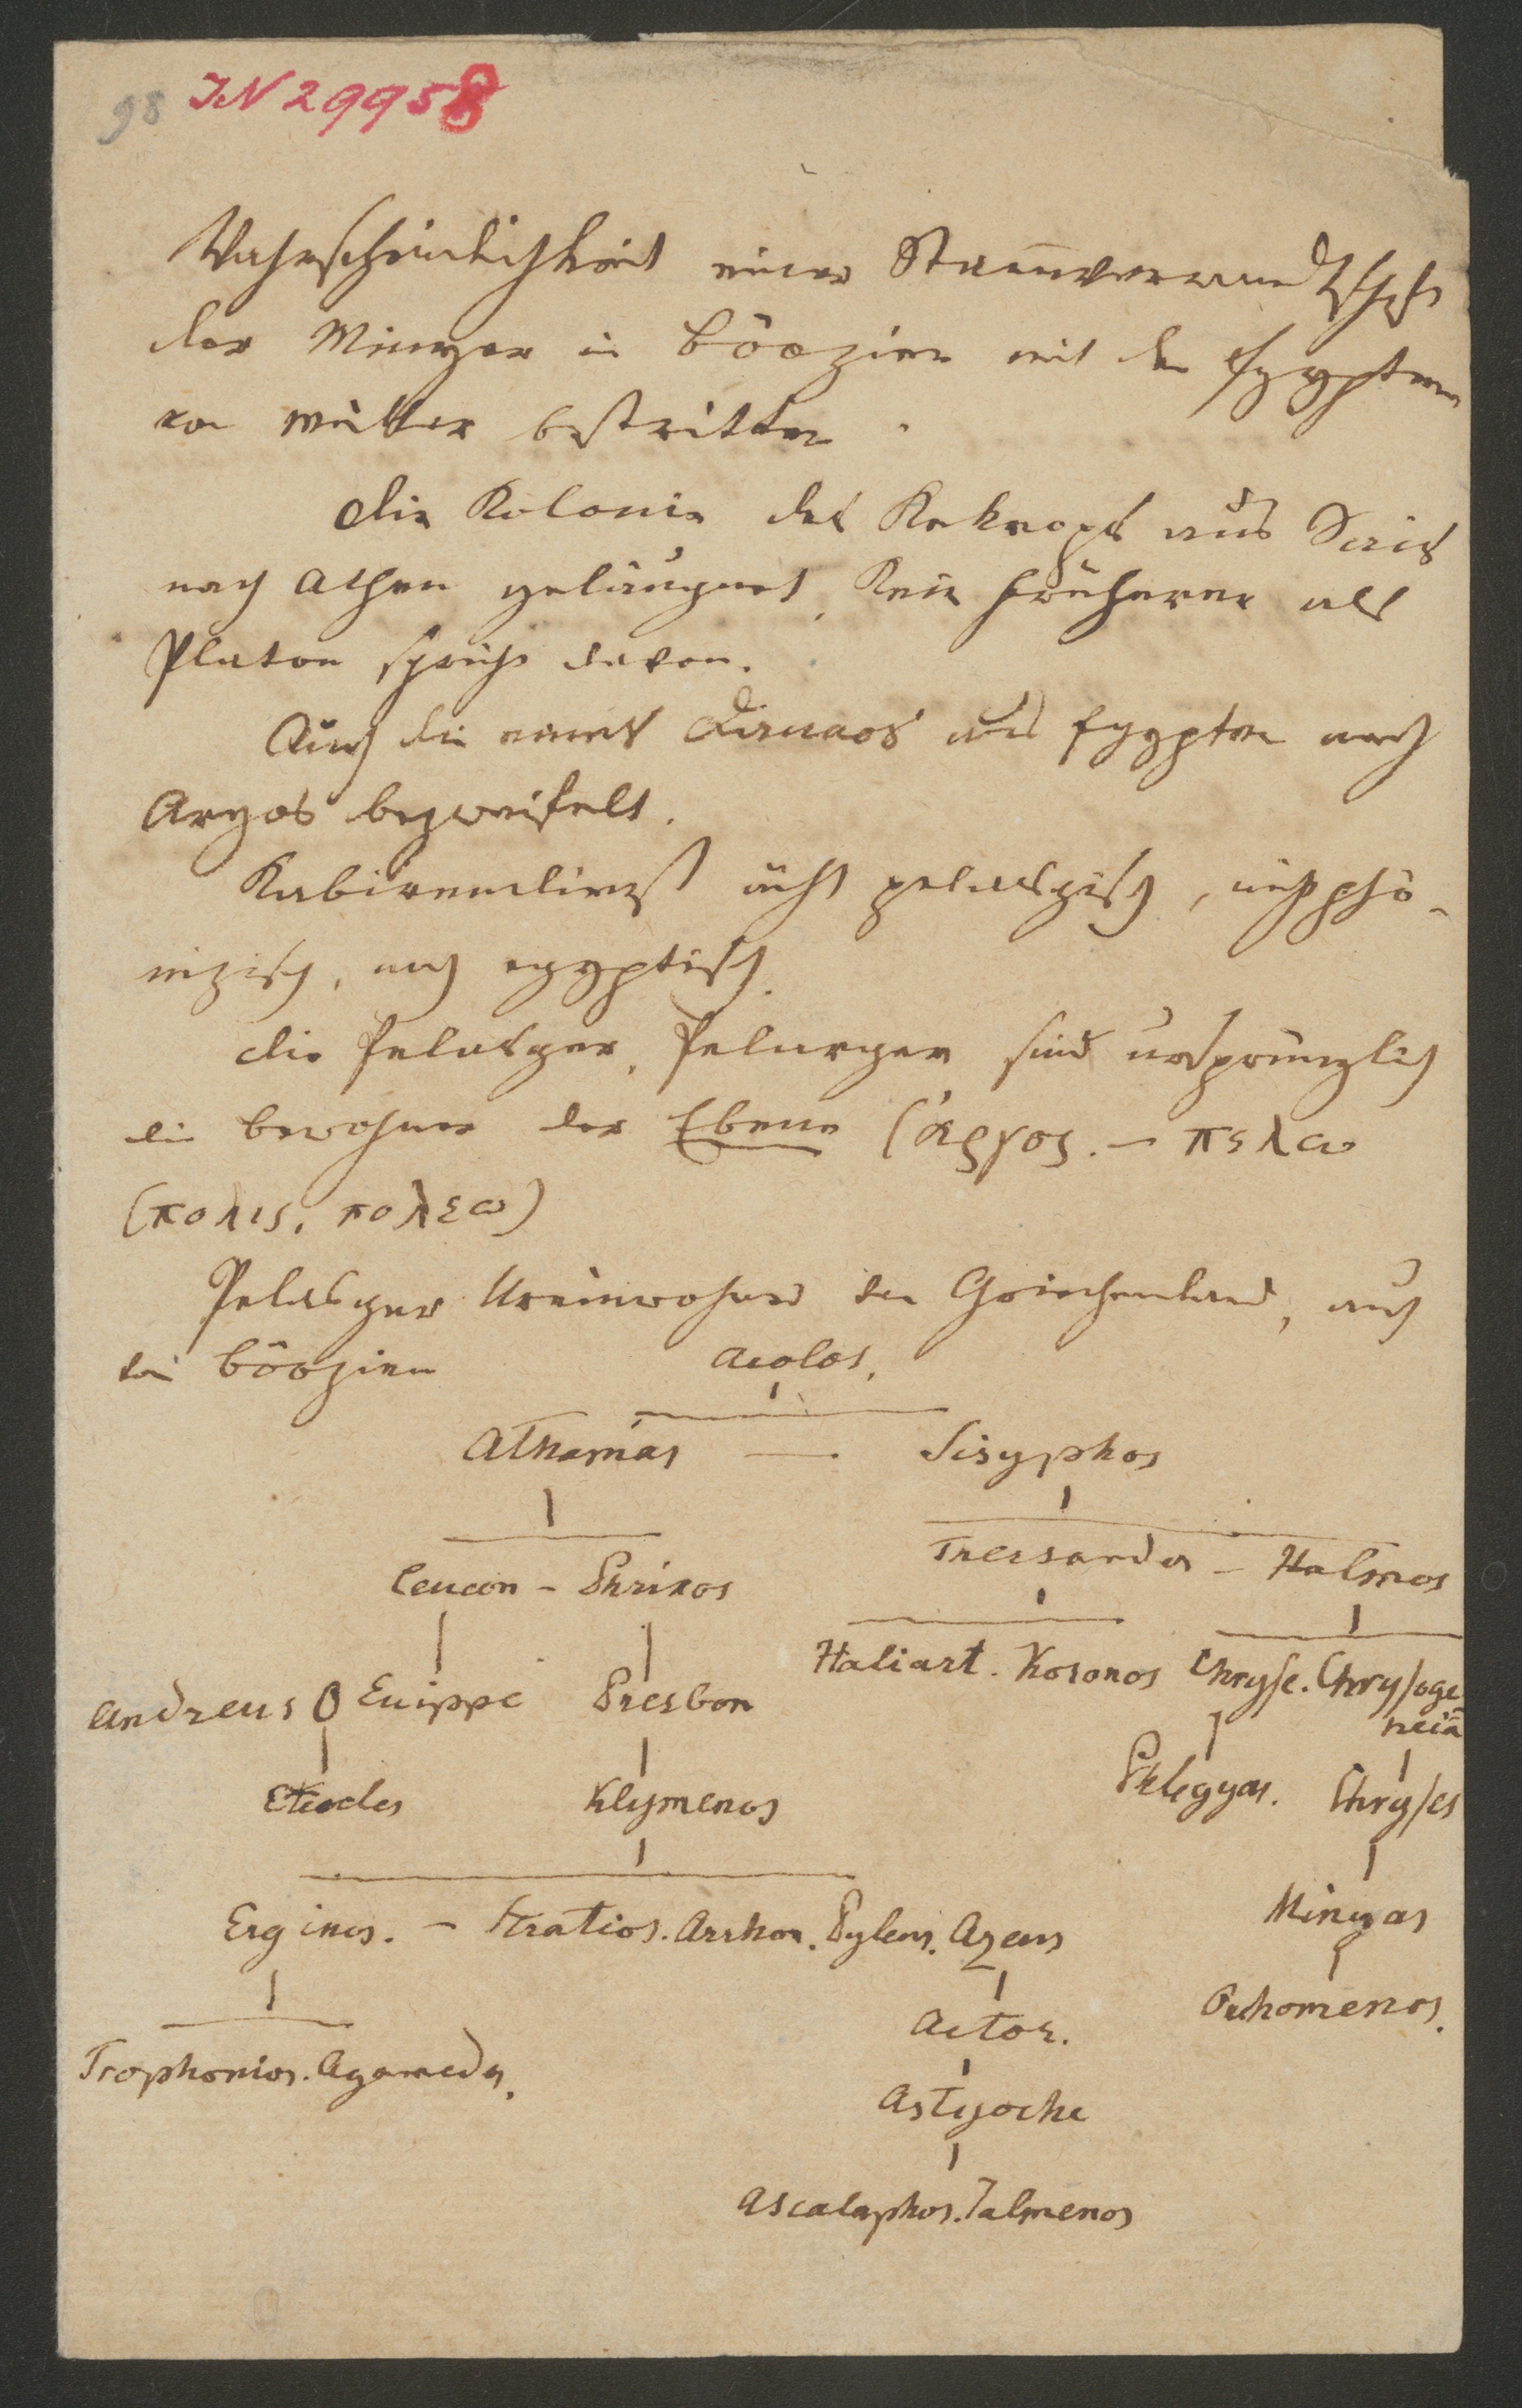 98 IN 29958
Wahrscheinlichkeit einer Stam̅verwandtschft
der Minyer in Böozien mit den Egyptern
von Müller bestritten.
Die Kolonie des Kekrops aus Sais
nach Athen geläugnet, Kein früherer als
Platon spricht davon.
Auch die eines Danaos aus Egypten nach
Argos bezweifelt.
Kabirendienst ächt pelasgisch, nicht phö-
nizisch, noch egyptisch.
Die Pelasger, Pelarger sind ursprünglich
die Bewohner der Ebene (ἀργος. – πελω
(πολις, πολεω)
Pelasger Ureinwohner von Griechenland, auch
von Böozien
Aeolos.
Athamas — Sisyphos
Leucon – Phrixos
Thersander – Halmos
Haliart. Koronos Chryse. Chrysoge-
neia
Andreus O Euippe Presbon
Eteocles Klymenos
Phlegyas. Chryses
Erginos. – Stratios. Arrhon. Pyleus. Azeus
Minyas
Actor.
Orchomenos.
Trophonios. Agamedes.
Astyoche
Ascalaphos. Jalmenos